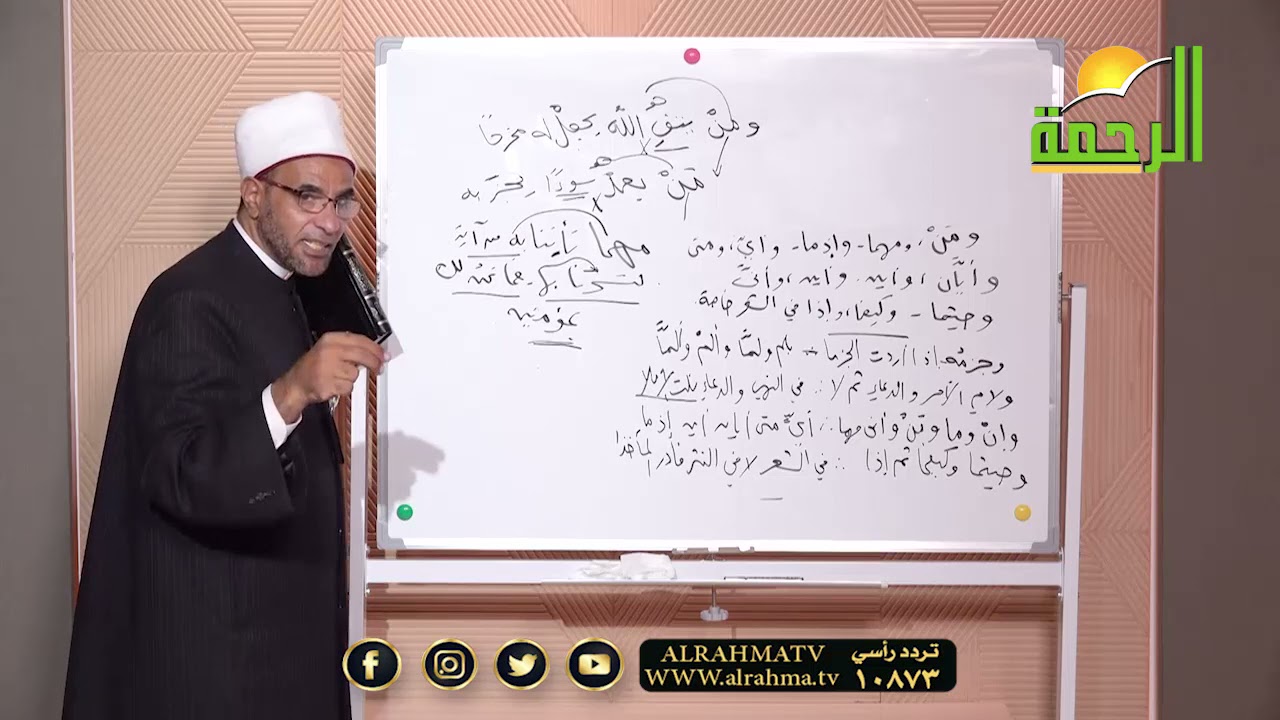 الرحمة
ومَنْ يتقِ اللهَ يجعلْ له مخرجًا
مَنْ يعملْ سوءًا يجزَ به
مهما تأتنا به من آية
لتسحرنا بها فما نحن لك
بمؤمنين
ومَنْ، ومهما - وإذما - وأيّ، ومتى
وأيَّان، وأين، وأين، وأنَّى
وحيثما - وكيفما، وإذا في الشعر خاصة
وجزمُه إذا أردت الجزما - بلم ولمَّا وألمْ وألمَّا
ولام الأمر والدعاء ثم لا : في النهي والدعاء نلت الأملا
وإنْ وما ومَنْ وأنى مهما : أيٌّ متى أيان أين إذما
وحيثما وكيفما ثم إذا : في الشعر لا في النثر فادر المأخذا
ALRAHMATV
WWW.alrahma.tv
تردد رأسي
١٠٨٧٣